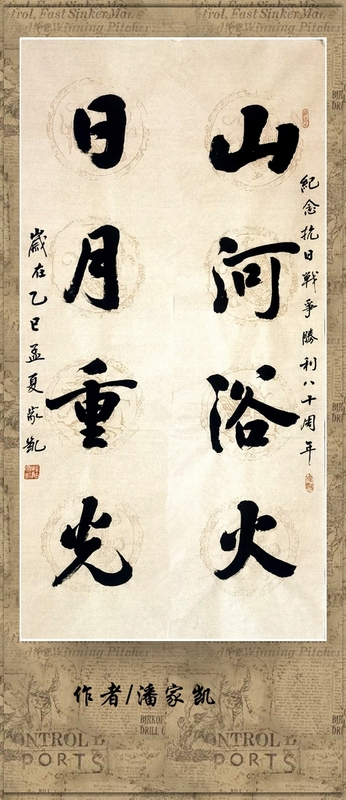 trol, Fast Sinker, Mar
Winning Pitcher
紀念抗日戰爭勝利八十周年
山河浴火
日月重光
歲在乙巳孟夏家凱
Winning Pitcher
作者/潘家凯
ONTROL
PORTS
BURKO
DRILL
ONTROL
PORTS